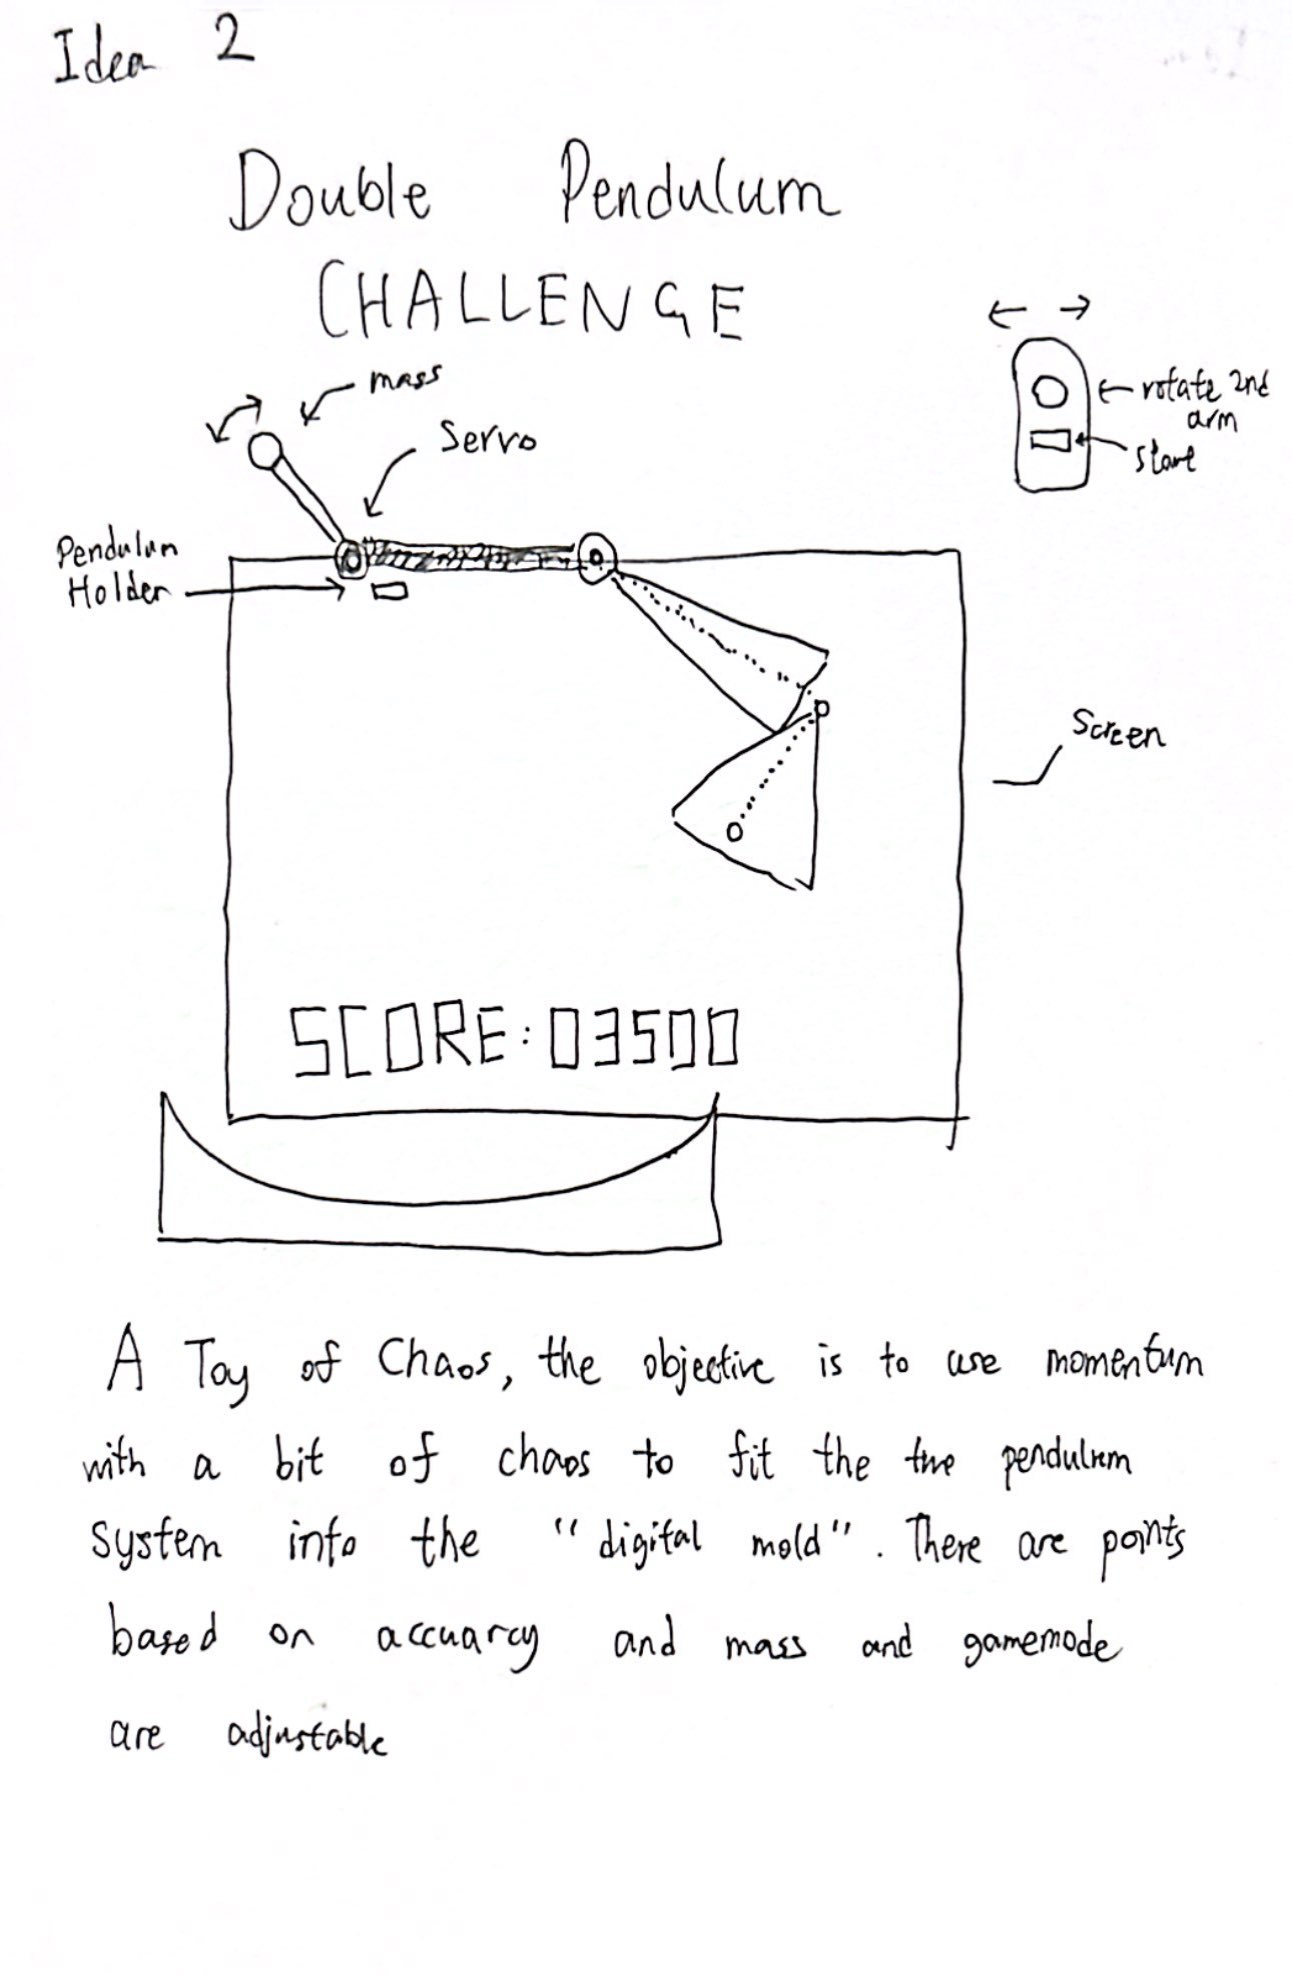 Idea 2
Double Pendulum
CHALLENGE
mass
Servo
rotate 2nd
arm
start
Pendulum
Holder
Screen
SCORE: 03500
A Toy of Chaos, the objective is to use momentum
with a bit of chaos to fit the the pendulum
System into the "digital mold". There are points
based on accuarcy and mass and gamemode
are adjustable